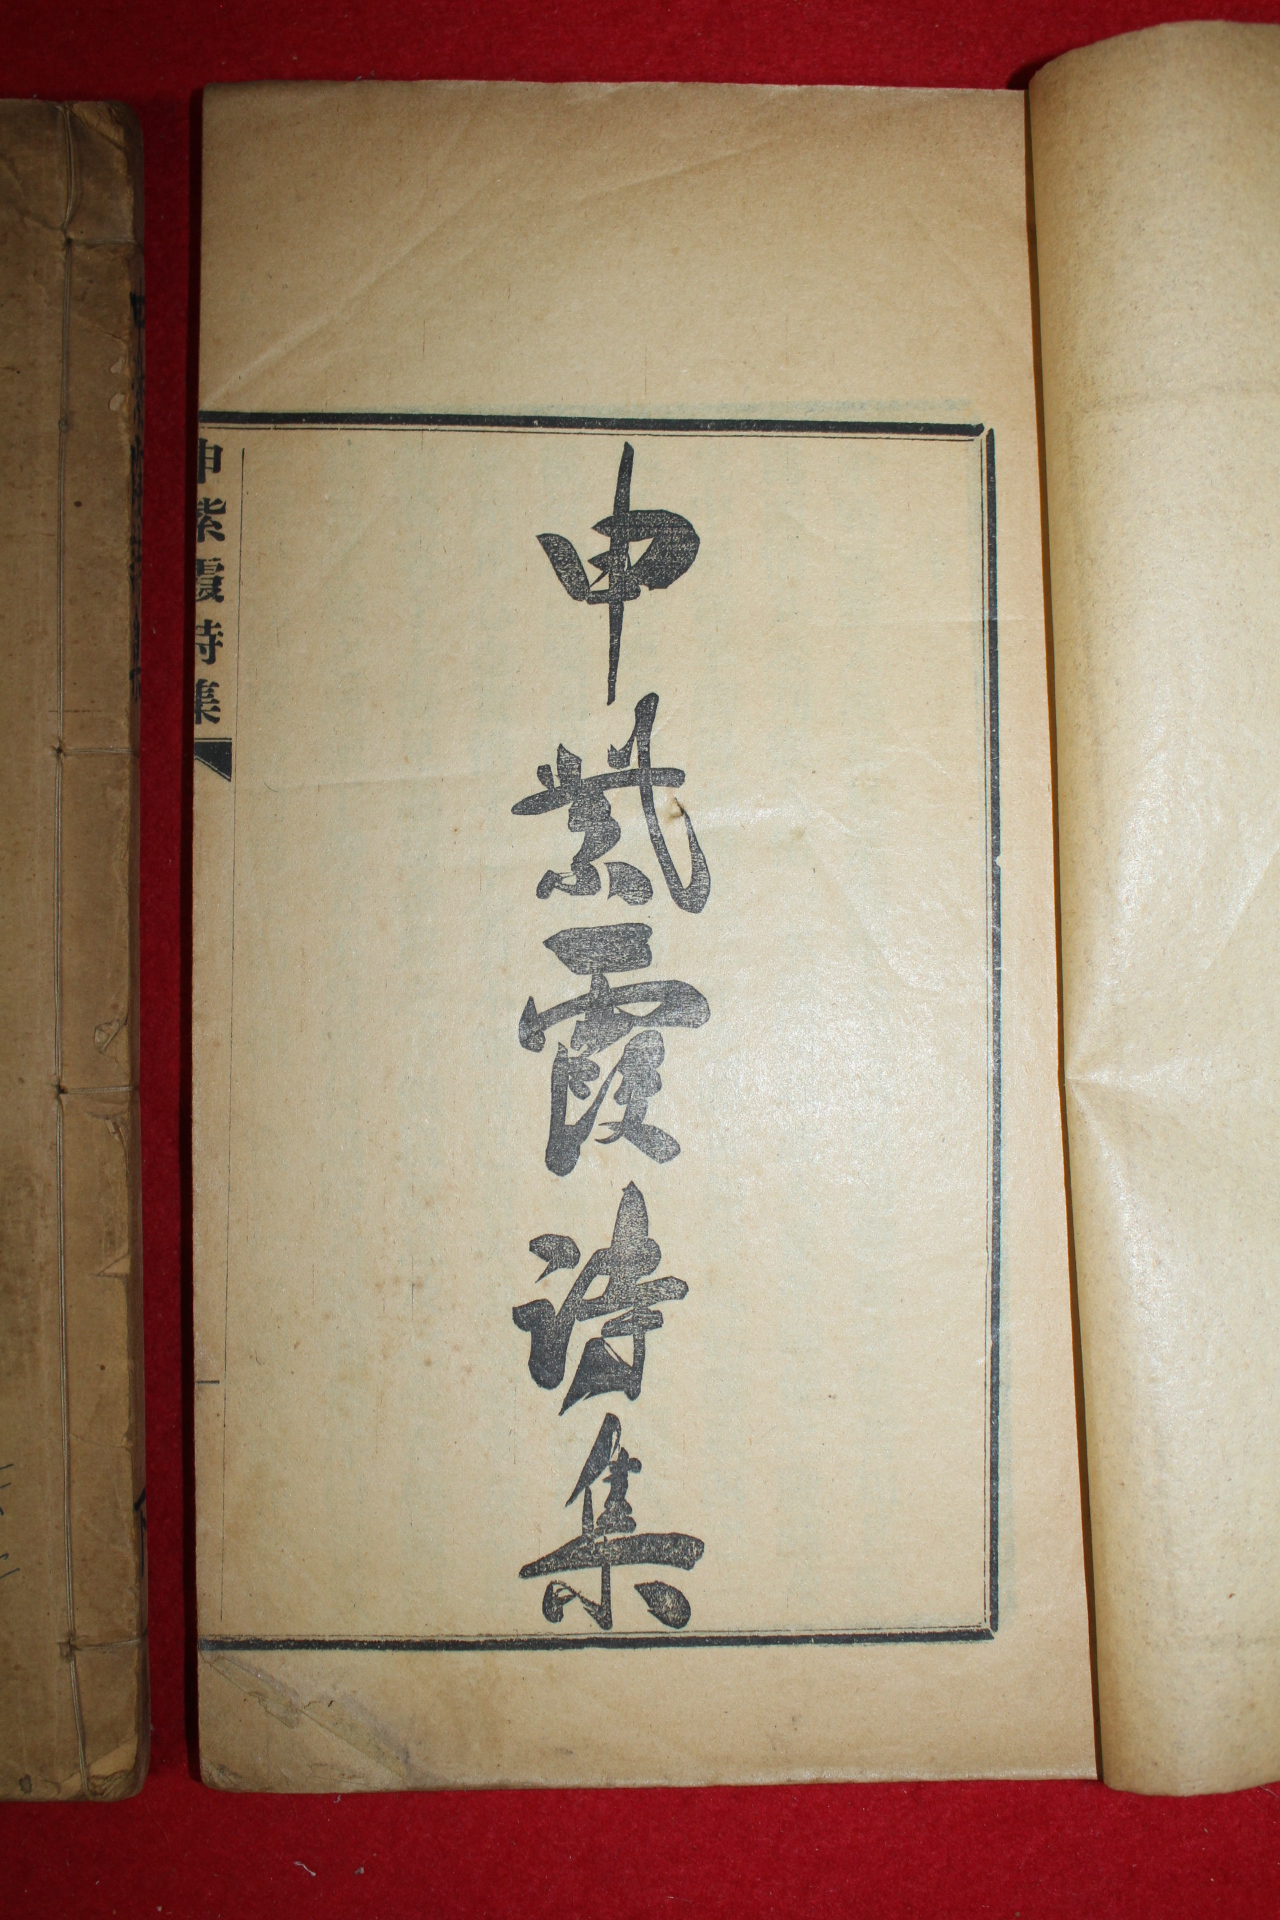 申紫霞詩集
申紫霞詩集